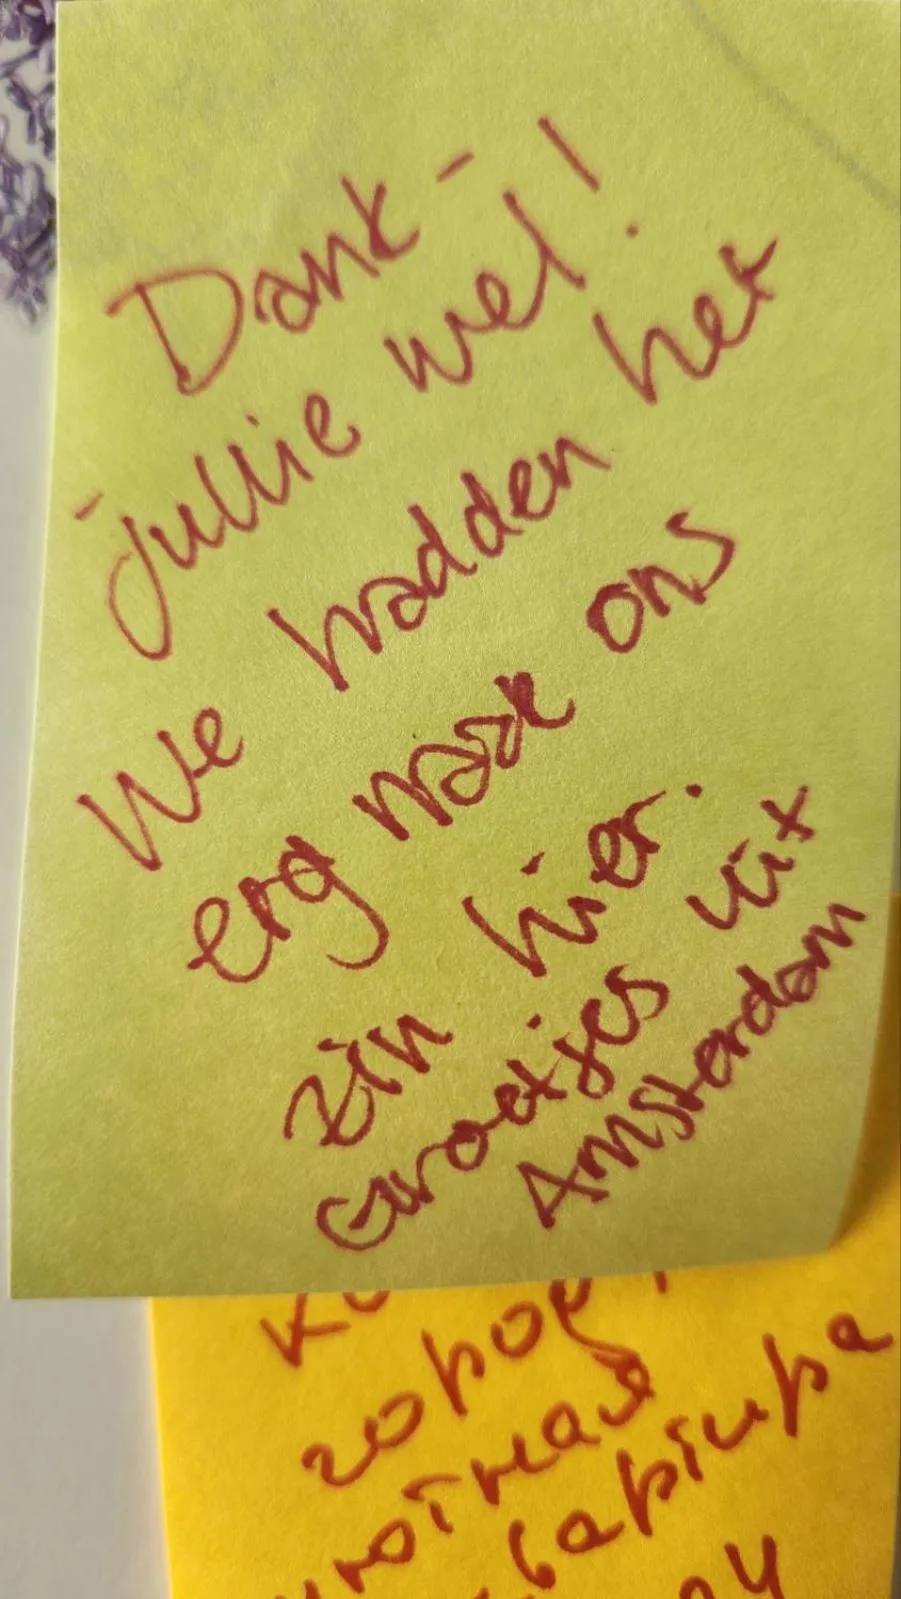 Dank-
jullie wel!
We hadden het
erg naar ons
zin hier.
Groetjes uit
Amsterdam
город